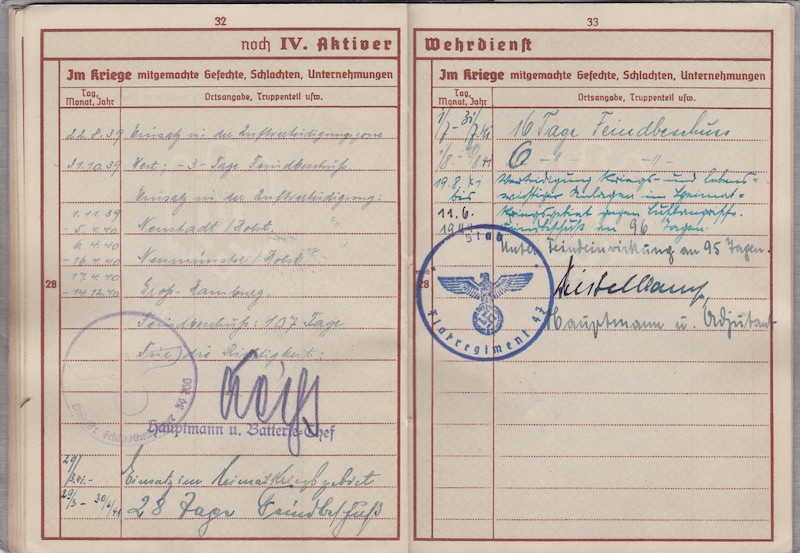 32
noch IV. Aktiver
Im Kriege mitgemachte Gefechte, Schlachten, Unternehmungen
Tag, Monat, Jahr
Ortsangabe, Truppenteil usw.
22.8.39 Einsatz in der Luftverteidigungszone
-31.10.39 West; -3- Tage Feindbeschuß.
Einsatz in der Luftverteidigung:
1.11.39
-5.4.40 Neustadt/Holst.
6.4.40
-16.4.40 Neumünster/Holst.
17.4.40
28
-14.12.40 Groß-Hamburg.
Feindbeschuß: 107 Tage
Für die Richtigkeit:
Hauptmann u. Batterie-Chef
Einsatz im Heimatkriegsgebiet
28 Tage Feindbeschuß
33
Wehrdienst
Im Kriege mitgemachte Gefechte, Schlachten, Unternehmungen
Tag, Monat, Jahr
Ortsangabe, Truppenteil usw.
16 Tage Feindbeschuss
6 -"- -"-
19.8.41 Verteidigung kriegs- und lebens-
bis wichtiger Anlagen im Heimat-
11.6. kriegsgebiet gegen Luftangriffe.
1944 Feindbeschuß an 96 Tagen.
Unter Feindeinwirkung an 95 Tagen.
28
Hauptmann u. Adjutant
Stab
Flakregiment 42